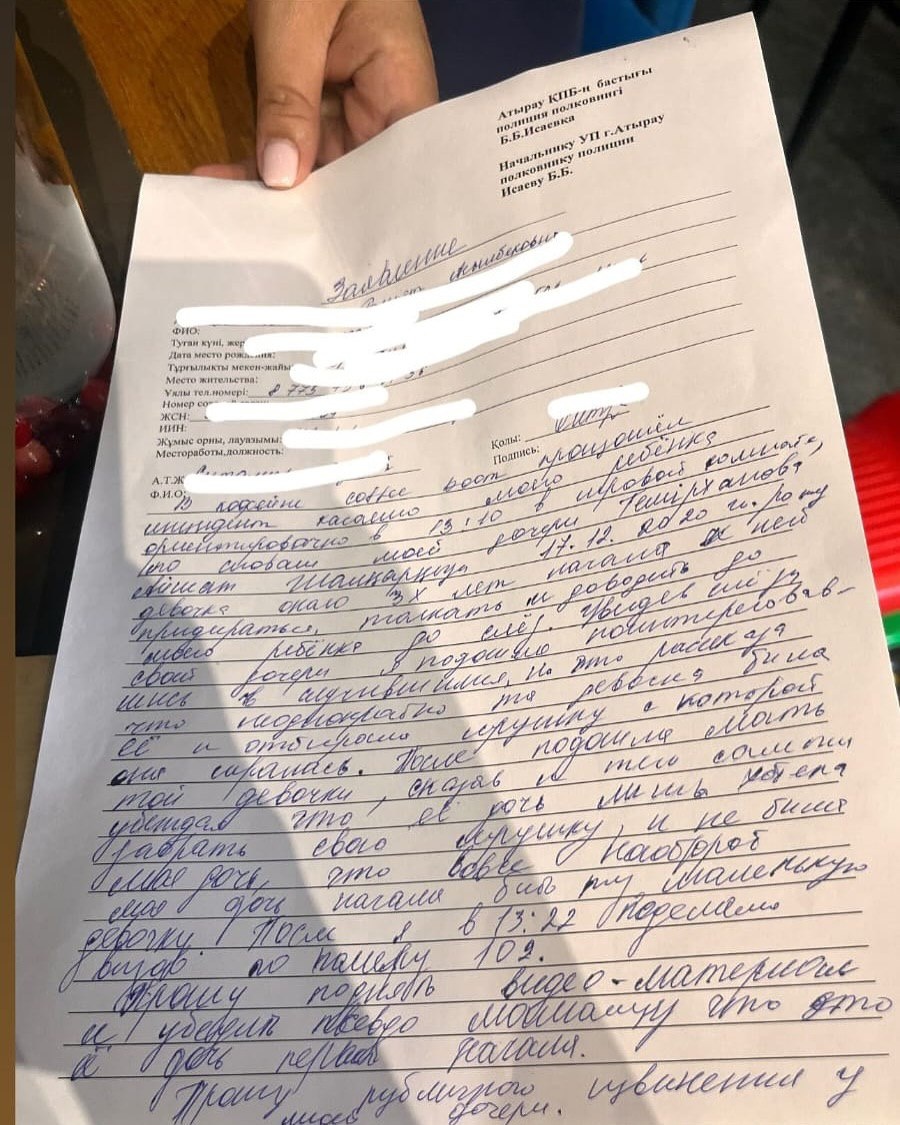 Атырау КПБ-ң бастығы
полиция полковнигі
Б.Б.Исаевка
Начальнику УП г.Атырау
полковнику полиции
Исаеву Б.Б.
Заявление
ФИО:
Туған күні, жер
Дата место рождения:
Тұрғылықты мекен-жайы
Место жительства:
Ұялы тел.номері: 8 775
Номер
ЖСН:
ИИН:
Жұмыс орны, лауазымы:
Местоработы,должность:
Қолы:
Подпись:
А.Т.Ж
Ф.И.О
В кофейне coffee boom произошёл
инцидент касаемо моего ребёнка
ориентировочно в 13:10 в игровой комнате,
со словам моей дочери Темірханова
Айшат 17.12.2020 г. рожд
девочка около 3х лет начала к ней
придираться, толкать и доводить до
моего ребёнка до слёз. Увидев слёзы
своей дочери я подошла поинтересовав-
шись в случившимся, на что рассказа
что неоднократно та девочка била
её и отбирала игрушку с которой
она игралась. После подошла мать
той девочки, сказав и тем самым
убеждая что её дочь лишь хотела
забрать свою игрушку, и не била
мая дочь, что вовсе наоборот
моя дочь начала бить ту маленькую
девочку. После я в 13:22 поделала
вызов по номеру 102.
Прошу поднять видео-материал
и убедить псевдо мамашу что это
её дочь первая начала.
Прошу публичного извинения у
моей дочери.